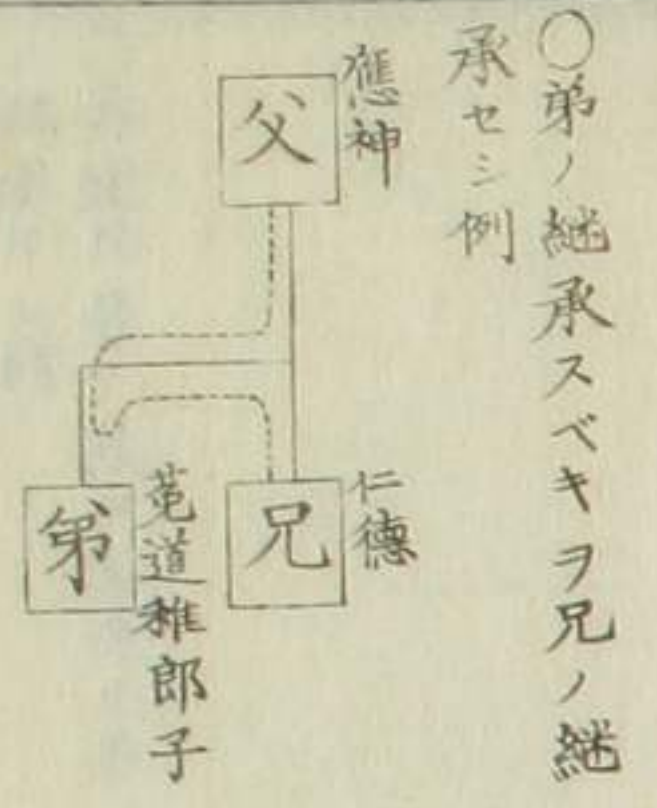 〇弟ノ継承スベキヲ兄ノ継
承セシ例
應神
父
仁德
兄
菟道稚郎子
弟